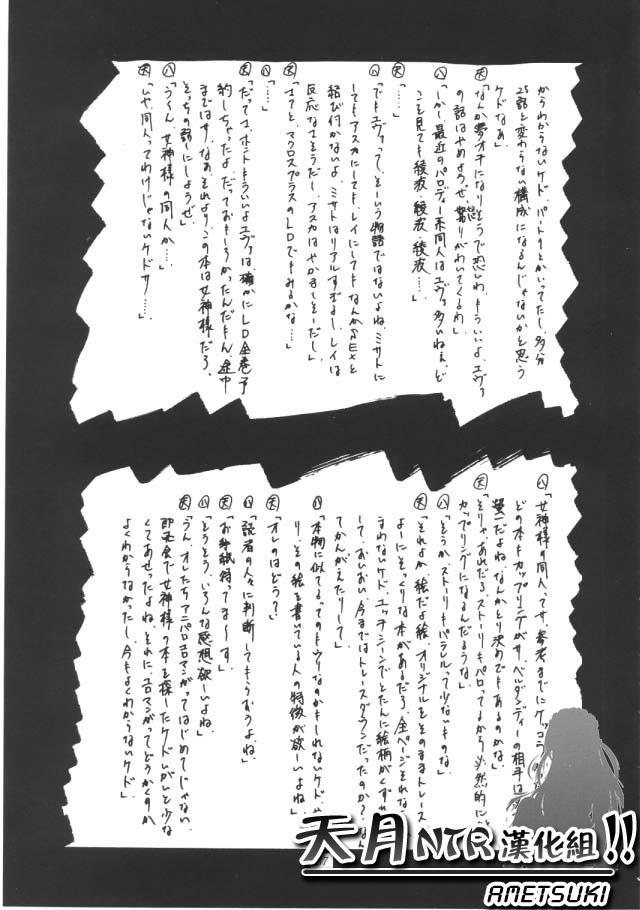 からわからないケド、パート1とかいってたし、多分
25話と変わらない構成になるんじゃないかと思う
ケドなあ」
天「なんか夢オチになりそうで恐いわ、もういいよ、エヴァ
の話はやめようぜ、怒りがわいてくるわ」
八「しかし最近のパロディー系同人はエヴァ多いねぇ、ど
こを見ても綾波、綾波、綾波……」
天「……」
八「でもエヴァって、そーいう物語ではないよね、ミサトに
してもアスカにしてもレイにしてもなんかSEXと
結び付かないよ、ミサトはリアルすぎるし、レイは
反応なさそうだし、アスカはやかましそーだし」
天「さてと、マクロスプラスのLDでもみるかな…」
八「……」
天「だってさ、ホントもういいよエヴァは、確かにLD全巻予
約しちゃったよ、だっておもしろかったんだもん、途中
まではサ、なあ、それよりこの本は女神様だろ、
そっちの話にしようぜ」
八「う〜ん、女神様の同人か…」
天「いや同人ってわけじゃないケドサ……」
八「女神様の同人ってサ、参考までにケッコウ
どの本もカップリングがサ、ベルダンディーの相手は
螢一だよね、なんかとり決めでもあるのかな」
天「そりゃあれだろ、ストーリーもパロってるから必然的に
カップリングになるんだろうな」
八「そうか、ストーリーもパラレルって少ないものな」
天「それよか絵だよ絵、オリジナルをそのままトレース
よーにそっくりな本があるだろ、全ページそれなら
まわないケド、エッチシーンでとたんに絵柄がくずれ
して、おいおい、今まではトレースダウンだったのか?なん
てかんがえたりして」
八「本物に似てるってのもウリなのかもしれないケド、や
り、その絵を書いている人の特徴が欲ーいよね」
天「オレのはどう?」
八「読者の人々に判断してもらおうよね」
天「お手紙待ってま〜す」
八「そうそう、いろんな感想欲ーいよね」
天「うん、オレたちアニパロエロマンガってはじめてじゃない、
即売会で女神様の本を探したケドいがいと少な
くてあせったよね、それにエロマンガってどうかくのか
よくわからなかったし、今もよくわからないケド」
天月NTR漢化組!!
AMETSUKI